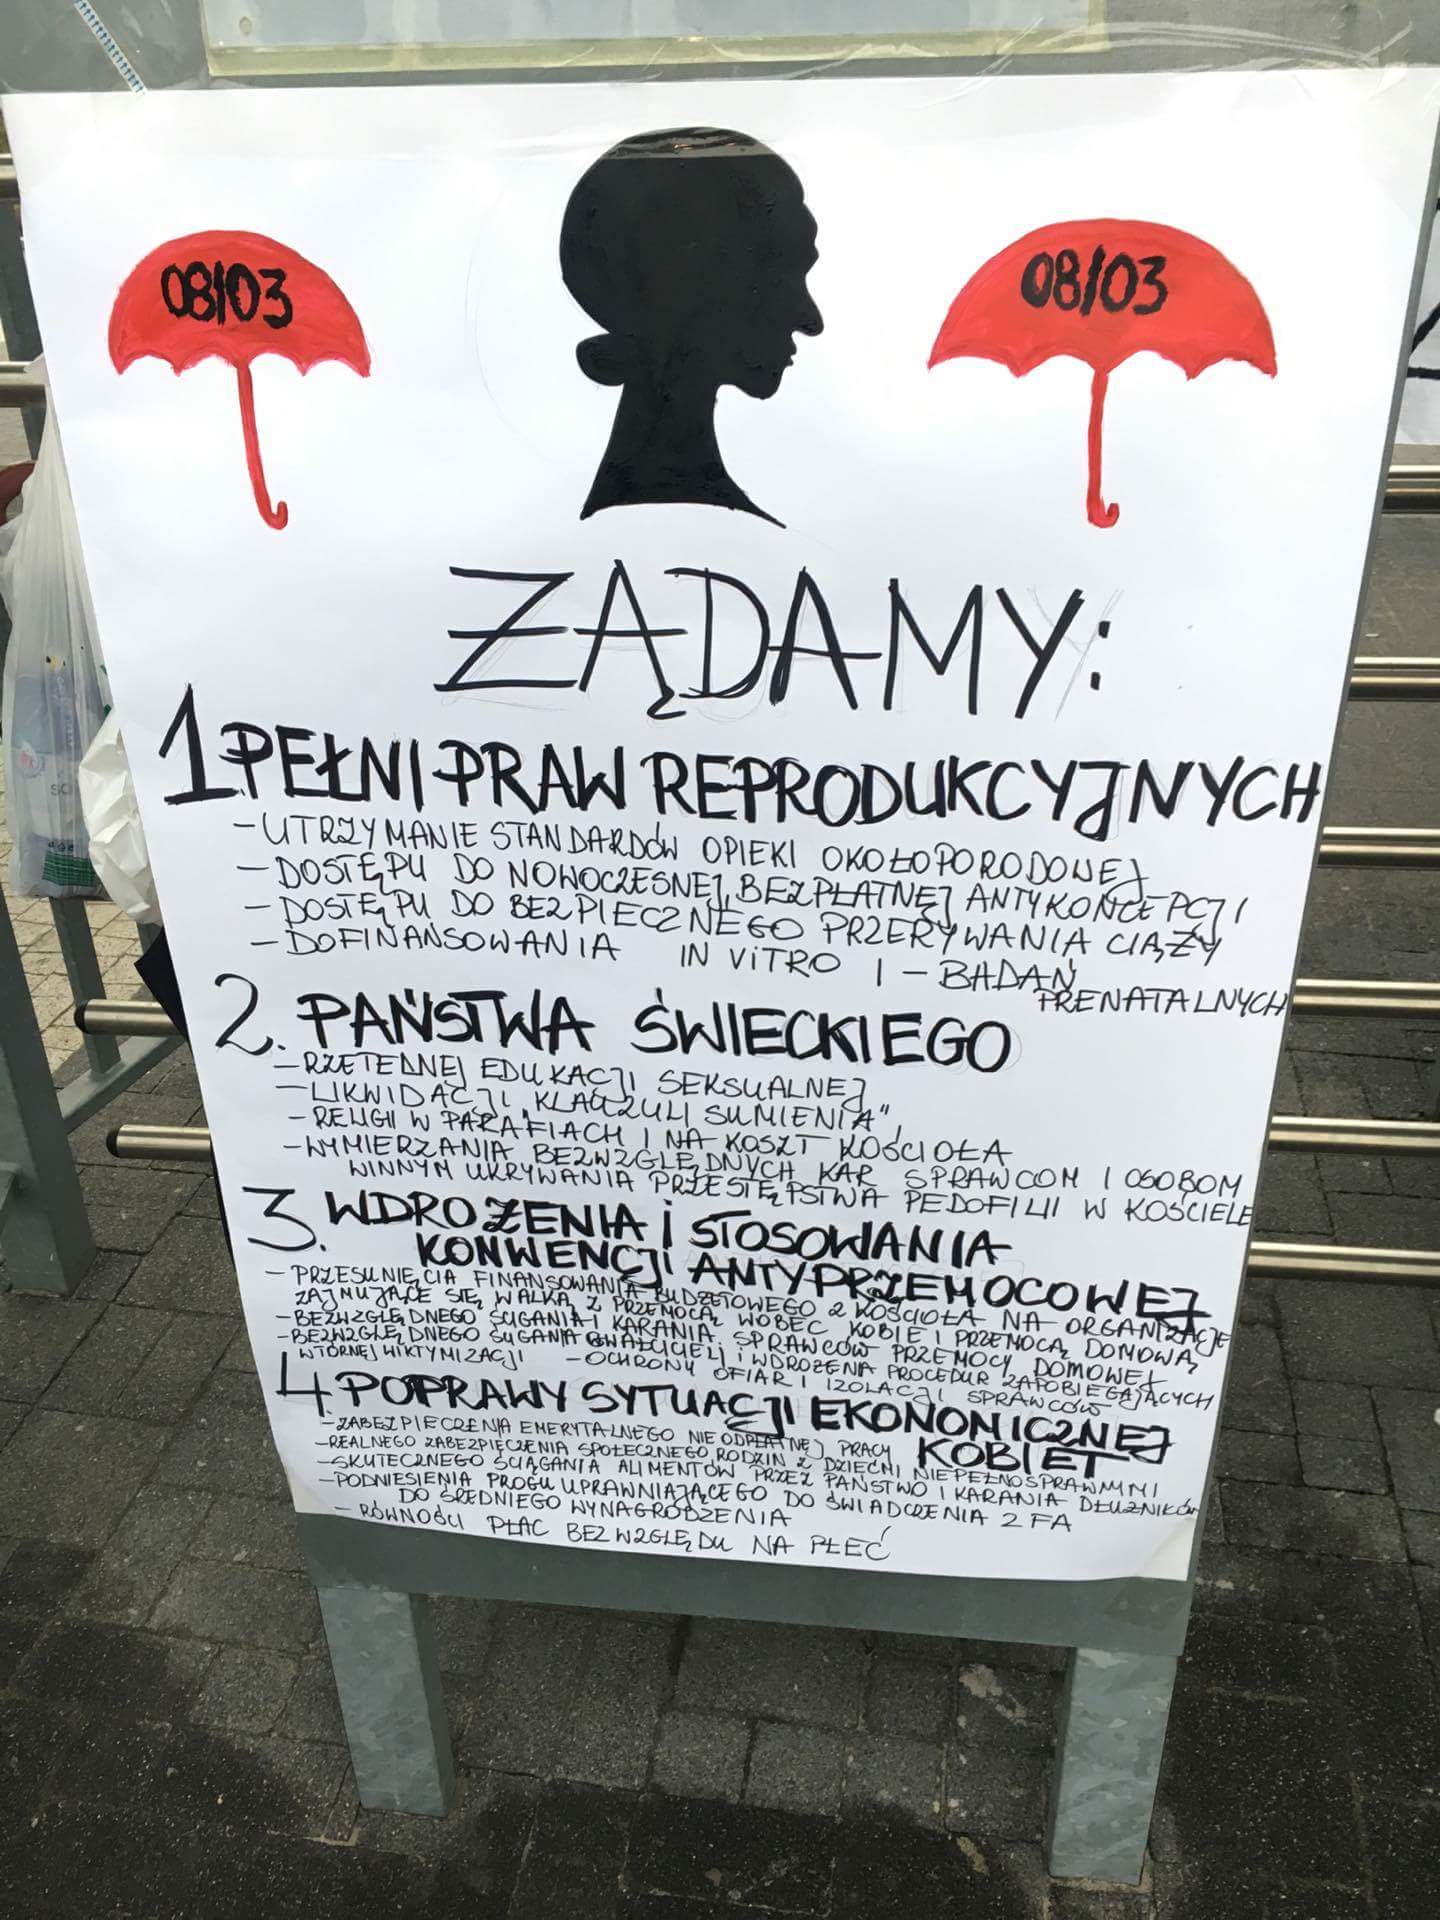 08/03
08/03
ŻĄDAMY:
1. PEŁNI PRAW REPRODUKCYJNYCH
- UTRZYMANIE STANDARDÓW OPIEKI OKOŁOPORODOWEJ
- DOSTĘPU DO NOWOCZESNEJ, BEZPŁATNEJ ANTYKONCEPCJI
- DOSTĘPU DO BEZPIECZNEGO PRZERYWANIA CIĄŻY
- DOFINANSOWANIA IN VITRO I - BADAŃ
PRENATALNYCH
2. PAŃSTWA ŚWIECKIEGO
- RZETELNEJ EDUKACJI SEKSUALNEJ
- LIKWIDACJI „KLAUZULI SUMIENIA”
- RELIGII W PARAFIACH I NA KOSZT KOŚCIOŁA
- WYMIERZANIA BEZWZGLĘDNYCH KAR SPRAWCOM I OSOBOM
WINNYM UKRYWANIA PRZESTĘPSTWA PEDOFILII W KOŚCIELE
3. WDROŻENIA I STOSOWANIA
KONWENCJI ANTYPRZEMOCOWEJ
- PRZESUNIĘCIA FINANSOWANIA BUDŻETOWEGO Z KOŚCIOŁA NA ORGANIZACJE
ZAJMUJĄCE SIĘ WALKĄ Z PRZEMOCĄ WOBEC KOBIET I PRZEMOCĄ DOMOWĄ
- BEZWZGLĘDNEGO ŚCIGANIA I KARANIA SPRAWCÓW PRZEMOCY DOMOWEJ
- BEZWZGLĘDNEGO ŚCIGANIA GWAŁCICIELI I WDROŻENIA PROCEDUR ZAPOBIEGAJĄCYCH
WTÓRNEJ WIKTYMIZACJI - OCHRONY OFIAR I IZOLACJI SPRAWCÓW
4. POPRAWY SYTUACJI EKONOMICZNEJ
KOBIET
- ZABEZPIECZENIA EMERYTALNEGO NIEODPŁATNEJ PRACY
- REALNEGO ZABEZPIECZENIA SPOŁECZNEGO RODZIN Z DZIEĆMI NIEPEŁNOSPRAWNYMI
- SKUTECZNEGO ŚCIĄGANIA ALIMENTÓW PRZEZ PAŃSTWO I KARANIA DŁUŻNIKÓW
- PODNIESIENIA PROGU UPRAWNIAJĄCEGO DO ŚWIADCZENIA Z FA
DO ŚREDNIEGO WYNAGRODZENIA
- RÓWNOŚCI PŁAC BEZ WZGLĘDU NA PŁEĆ